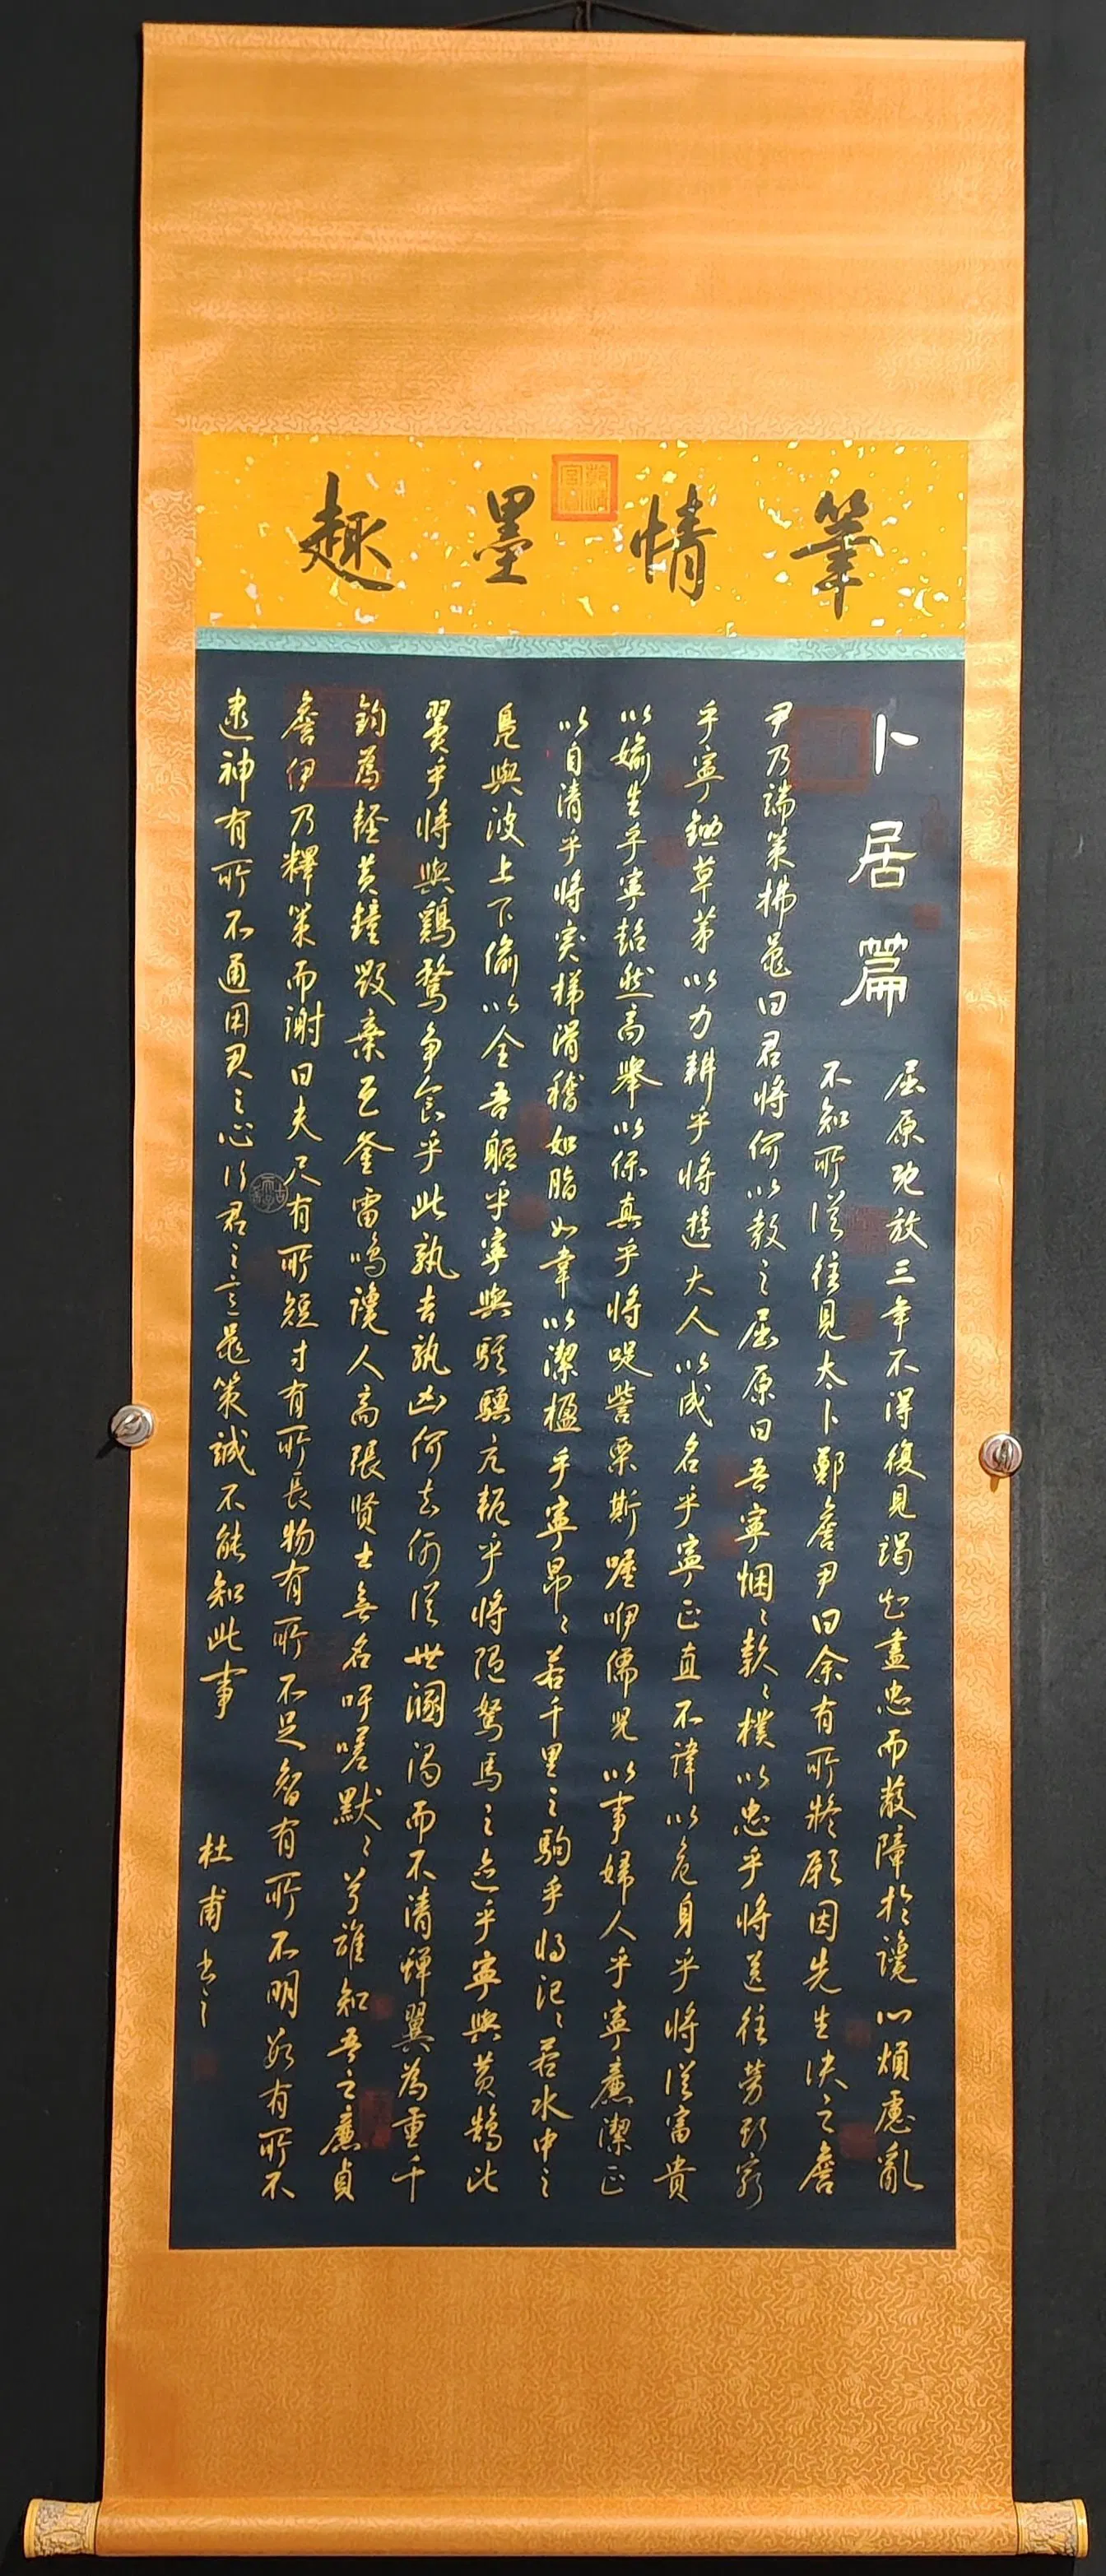 筆情墨趣
卜居篇
屈原既放三年不得復見竭知盡忠而蔽障於讒心煩慮亂
不知所從往見太卜鄭詹尹曰余有所疑願因先生決之詹
尹乃端策拂龜曰君將何以教之屈原曰吾寧悃々款々樸以忠乎將送往勞斯窮
乎寧鋤草茅以力耕乎將遊大人以成名乎寧正直不諱以危身乎將從富貴
以媮生乎寧超然高舉以保真乎將哫訾栗斯喔咿儒兒以事婦人乎寧廉潔正
以自清乎將突梯滑稽如脂如韋以潔楹乎寧昂々若千里之駒乎將氾々若水中之
鳧與波上下偷以全吾軀乎寧與騏驥亢軛乎將隨駑馬之迹乎寧與黃鵠比
翼乎將與鷄鶩爭食乎此孰吉孰凶何去何從世溷濁而不清蟬翼為重千
鈞為輕黃鐘毀棄瓦釜雷鳴讒人高張賢士無名吁嗟默々兮誰知吾之廉貞
詹伊乃釋策而謝曰夫尺有所短寸有所長物有所不足智有所不明數有所不
逮神有所不通用君之心行君之言龜策誠不能知此事
杜甫書之